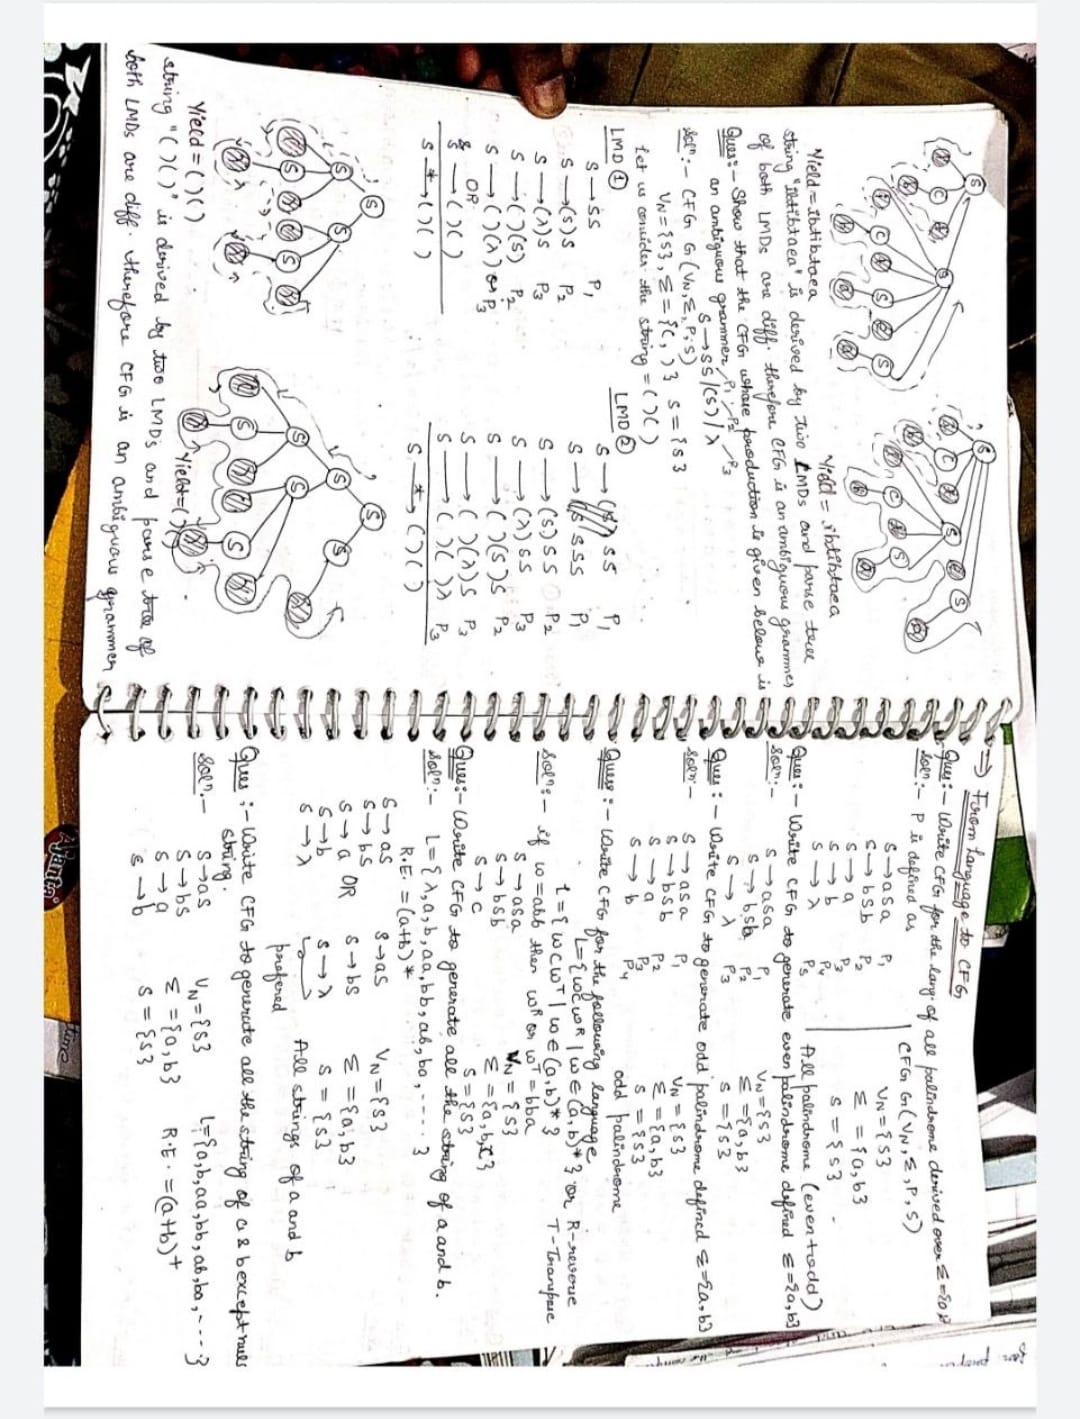 Yield = ibtibtaea
Yield = ibtibtaea
string "ibtibtaea" is derived by two LMDs and parse tree
of both LMDs are diff. therefore CFG is an ambiguous grammer
Ques:- Show that the CFG whose production is given below is
an ambiguous grammer
P1 P2 P3
S→SS/(S)/λ
Solⁿ:- CFG G(VN,Σ,P,S)
VN={S}, Σ={(, )} S={S}
Let us consider the string = ( )( )
LMD ①
S→SS P1
S→(S)S P2
S→(λ)S P3
S→( )(S) P2
S→( )(λ) or P3
OR
S→( )( )
S *→ ( )( )
LMD ②
S→ SS P1
S→ SSS P1
S→(S)SS P2
S→(λ)SS P3
S→( )(S)S P2
S→( )(λ)S P3
S→( )( )λ P3
S *→ ( )( )
Yield = ( )( )
Yield=( )( )
string "( )( )" is derived by two LMDs and parse tree of
both LMDs are diff. therefore CFG is an ambiguous grammer
⇒ From Language to CFG
Ques:- Write CFG for the lang. of all palindrome derived over Σ=
Solⁿ:- P is defined as
S→aSa P1
S→bSb P2
S→a P3
S→b P4
S→λ P5
CFG G(VN,Σ,P,S)
VN={S}
Σ={a,b}
S={S}
All palindrome (even+odd)
Ques:- Write CFG to generate even palindrome defined Σ={a,b}
Solⁿ:-
S→aSa P1
S→bSb P2
S→λ P3
VN={S}
Σ={a,b}
S={S}
Ques:- Write CFG to generate odd palindrome defined Σ={a,b}
Solⁿ-
S→aSa P1
S→bSb P2
S→a P3
S→b P4
VN={S}
Σ={a,b}
S={S}
odd palindrome
Ques:- Write CFG for the following language
L={wcwᴿ | w∈(a,b)*} or R-reverse
L={wcwᵀ | w∈(a,b)*} T-Transpose
Solⁿ:- if w=abb then wᴿ or wᵀ=bba
S→aSa
S→bSb
S→c
VN={S}
Σ={a,b,c}
S={S}
Ques:- Write CFG to generate all the string of a and b.
Solⁿ:- L={λ,a,b,aa,bb,ab,ba,----}
R.E. =(a+b)*
S→aS
S→bS
S→a OR
S→b
S→λ
S→aS
S→bS
S→λ
prefered
VN={S}
Σ={a,b}
S={S}
All strings of a and b
Ques:- Write CFG to generate all the string of a & b except null
string.
Solⁿ.-
S→aS
S→bS
S→a
S→b
VN={S}
Σ={a,b}
S={S}
L={a,b,aa,bb,ab,ba,---}
R.E.=(a+b)⁺
Ajanta
time